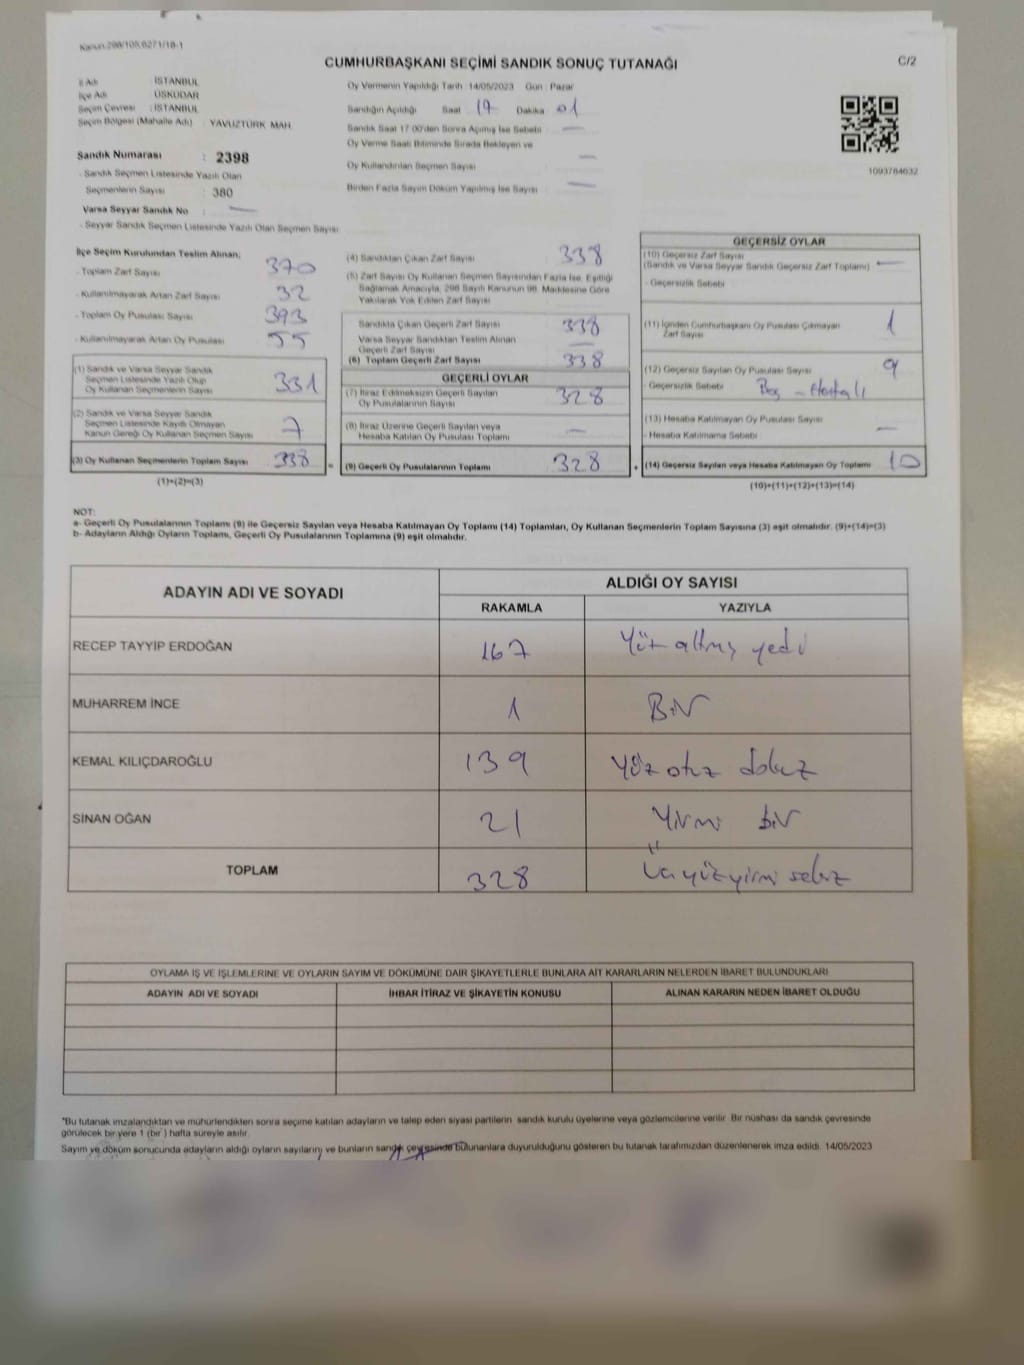 Kanun:298/105,6271/18-1
CUMHURBAŞKANI SEÇİMİ SANDIK SONUÇ TUTANAĞI
C/2
İl Adı : İSTANBUL
İlçe Adı : ÜSKÜDAR
Seçim Çevresi : İSTANBUL
Seçim Bölgesi (Mahalle Adı) : YAVUZTÜRK MAH.
Sandık Numarası : 2398
- Sandık Seçmen Listesinde Yazılı Olan
Seçmenlerin Sayısı : 380
Varsa Seyyar Sandık No : —
- Seyyar Sandık Seçmen Listesinde Yazılı Olan Seçmen Sayısı
Oy Vermenin Yapıldığı Tarih :14/05/2023 Gün : Pazar
Sandığın Açıldığı Saat 17 Dakika 01
Sandık Saat 17:00'den Sonra Açılmış İse Sebebi : —
Oy Verme Saati Bitiminde Sırada Bekleyen ve
Oy Kullandırılan Seçmen Sayısı : —
Birden Fazla Sayım Döküm Yapılmış İse Sayısı : —
1093784632
İlçe Seçim Kurulundan Teslim Alınan;
- Toplam Zarf Sayısı : 370
- Kullanılmayarak Artan Zarf Sayısı : 32
- Toplam Oy Pusulası Sayısı : 393
- Kullanılmayarak Artan Oy Pusulası : 55
(1) Sandık ve Varsa Seyyar Sandık
Seçmen Listesinde Yazılı Olup
Oy Kullanan Seçmenlerin Sayısı : 331
(2) Sandık ve Varsa Seyyar Sandık
Seçmen Listesinde Kayıtlı Olmayan
Kanun Gereği Oy Kullanan Seçmen Sayısı : 7
(3) Oy Kullanan Seçmenlerin Toplam Sayısı : 338
(1)+(2)=(3)
(4) Sandıktan Çıkan Zarf Sayısı : 338
(5) Zarf Sayısı Oy Kullanan Seçmen Sayısından Fazla İse, Eşitliği
Sağlamak Amacıyla, 298 Sayılı Kanunun 98. Maddesine Göre
Yakılarak Yok Edilen Zarf Sayısı
Sandıkta Çıkan Geçerli Zarf Sayısı : 338
Varsa Seyyar Sandıktan Teslim Alınan
Geçerli Zarf Sayısı
(6) Toplam Geçerli Zarf Sayısı : 338
GEÇERLİ OYLAR
(7) İtiraz Edilmeksizin Geçerli Sayılan
Oy Pusulalarının Sayısı : 328
(8) İtiraz Üzerine Geçerli Sayılan veya
Hesaba Katılan Oy Pusulası Toplamı : —
= (9) Geçerli Oy Pusulalarının Toplamı : 328 +
GEÇERSİZ OYLAR
(10) Geçersiz Zarf Sayısı
(Sandık ve Varsa Seyyar Sandık Geçersiz Zarf Toplamı) : —
- Geçersizlik Sebebi
(11) İçinden Cumhurbaşkanı Oy Pusulası Çıkmayan
Zarf Sayısı : 1
(12) Geçersiz Sayılan Oy Pusulası Sayısı : 9
- Geçersizlik Sebebi : Boş - Hatalı
(13) Hesaba Katılmayan Oy Pusulası Sayısı : —
- Hesaba Katılmama Sebebi :
(14) Geçersiz Sayılan veya Hesaba Katılmayan Oy Toplamı : 10
(10)+(11)+(12)+(13)=(14)
NOT:
a- Geçerli Oy Pusulalarının Toplamı (9) ile Geçersiz Sayılan veya Hesaba Katılmayan Oy Toplamı (14) Toplamları, Oy Kullanan Seçmenlerin Toplam Sayısına (3) eşit olmalıdır. (9)+(14)=(3)
b- Adayların Aldığı Oyların Toplamı, Geçerli Oy Pusulalarının Toplamına (9) eşit olmalıdır.
ADAYIN ADI VE SOYADI
ALDIĞI OY SAYISI
RAKAMLA YAZIYLA
RECEP TAYYİP ERDOĞAN 167 Yüz altmış yedi
MUHARREM İNCE 1 Bir
KEMAL KILIÇDAROĞLU 139 Yüz otuz dokuz
SİNAN OĞAN 21 Yirmi bir
TOPLAM 328 Üçyüzyirmi sekiz
OYLAMA İŞ VE İŞLEMLERİNE VE OYLARIN SAYIM VE DÖKÜMÜNE DAİR ŞİKAYETLERLE BUNLARA AİT KARARLARIN NELERDEN İBARET BULUNDUKLARI
ADAYIN ADI VE SOYADI İHBAR İTİRAZ VE ŞİKAYETİN KONUSU ALINAN KARARIN NEDEN İBARET OLDUĞU
*Bu tutanak imzalandıktan ve mühürlendikten sonra seçime katılan adayların ve talep eden siyasi partilerin sandık kurulu üyelerine veya gözlemcilerine verilir. Bir nüshası da sandık çevresinde
görülecek bir yere 1 (bir ) hafta süreyle asılır.
Sayım ve döküm sonucunda adayların aldığı oyların sayılarını ve bunların sandık çevresinde bulunanlara duyurulduğunu gösteren bu tutanak tarafımızdan düzenlenerek imza edildi. 14/05/2023